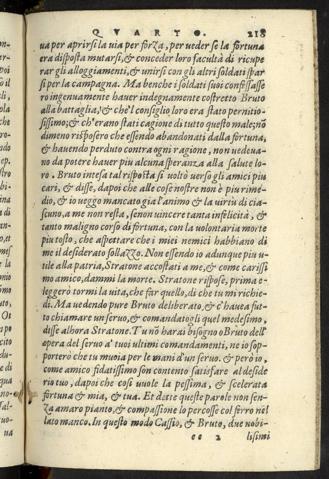 QVARTO. 218
ua per aprirsi la uia per forza, per ueder se la fortuna
era disposta mutarsi, & conceder loro facultà di ricupe
rar gli alloggiamenti, & unirsi con gli altri soldati spar
si per la campagna. Ma benche i soldati suoi confessasse
ro ingenuamente hauer indegnamente costretto Bruto
alla battaglia, & che'l consiglio loro era stato pernitio-
sissimo; & ch'erano stati cagione di tutto questo male, nō
dimeno risposero che essendo abandonati dalla fortuna,
& hauendo perduto contra ogni ragione, non uedeua-
no da potere hauer piu alcuna speranza alla salute lo-
ro. Bruto intesa tal risposta si uoltò uerso gli amici piu
cari, & disse, dapoi che alle cose nostre non è piu rime-
dio, & io ueggo mancato gia l'animo & la uirtu di cia-
scuno, a me non resta, se non uincere tanta infelicità, &
tanto maligno corso di fortuna, con la uolontaria morte
piu tosto, che aspettare che i miei nemici habbiano di
me il desiderato sollazzo. Non essendo io adunque piu u-
tile alla patria, Stratone accostati a me, & come carissi
mo amico, dammi la morte. Stratone rispose, prima e-
leggerò tormi la uita, che far quello, di che tu mi richie-
di. Ma uedendo pure Bruto deliberato, & c'hauea fat-
to chiamare un seruo, & comandatogli quel medesimo,
disse alhora Stratone. Tu nō harai bisogno o Bruto dell'
opera del seruo a' tuoi ultimi comandamenti, ne io sop-
porterò che tu muoia per le mani d'un seruo. & però io,
come amico fidatissimo son contento satisfare al deside
rio tuo, dapoi che cosi uuole la pessima, & scelerata
fortuna & mia, & tua. Et dette queste parole non sen-
za amaro pianto, & compassione lo percosse col ferro nel
lato manco. In questo modo Cassio, & Bruto, due nobi-
ee 2 lissimi